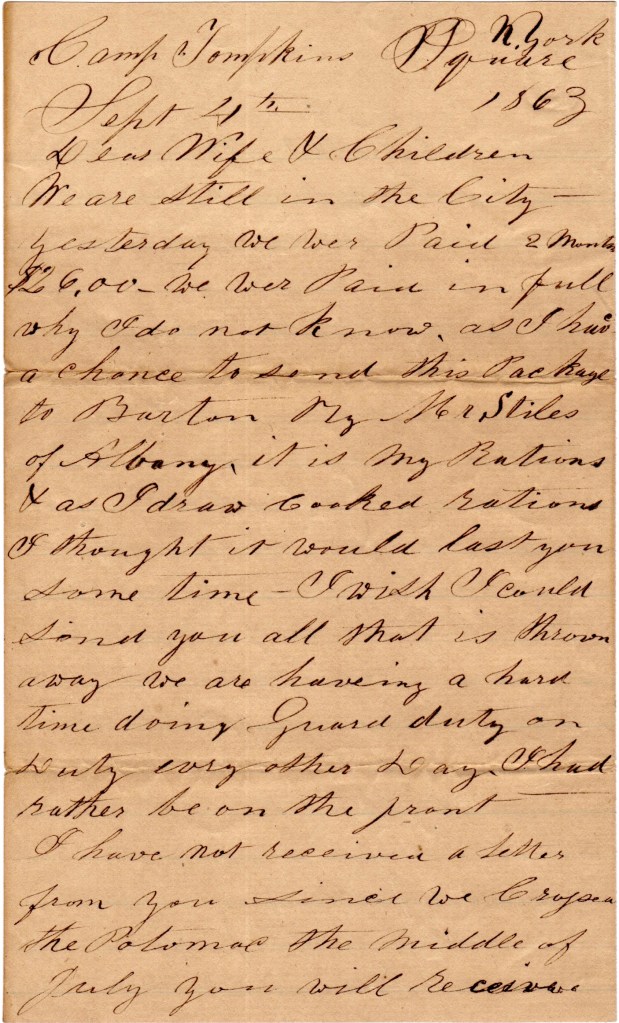 Camp Tompkins Square N. York
Sept 4th 1863
Dear Wife & Children
We are still in the City –
yesterday we wer Paid 2 Months
$26,00 – we wer Paid in full
why I do not know, as I have
a chance to send this Package
to Barton By Mr Stiles
of Albany, it is My Rations
& as I draw Cooked rations
I thought it would last you
some time – I wish I could
send you all that is thrown
away we are haveing a hard
time doing Guard duty on
Duty evry other Day. I had
rather be on the front
I have not received a letter
from you since we Crossed
the Potomac the Middle of
July you will receive